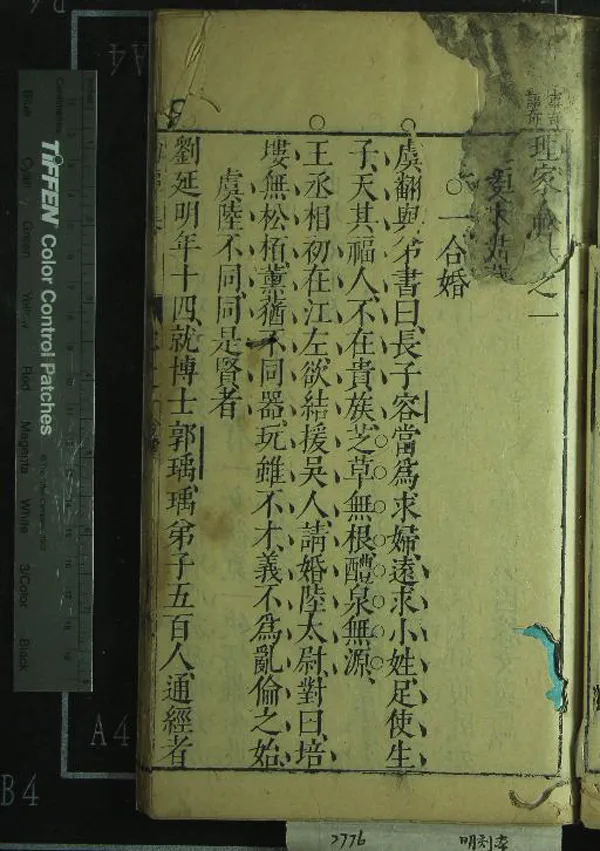 理家
之一
○一合婚
虞翻與弟書曰、長子容當爲求婦、遠求小姓、足使生
子、天其福人、不在貴族、芝草無根、醴泉無源、
王丞相初在江左、欲結援吳人、請婚陸太尉、對曰、培
塿無松栢、薰蕕不同器、玩雖不才、義不爲亂倫之始、
虞陸不同、同是賢者
劉延明年十四、就博士郭瑀、瑀弟子五百人、通經者
TIFFEN Color Control Patches
Centimetres
Blue
Cyan
Green
Yellow
Red
Magenta
White
3/Color
Black
A4
A4
B4
2776
明刻本